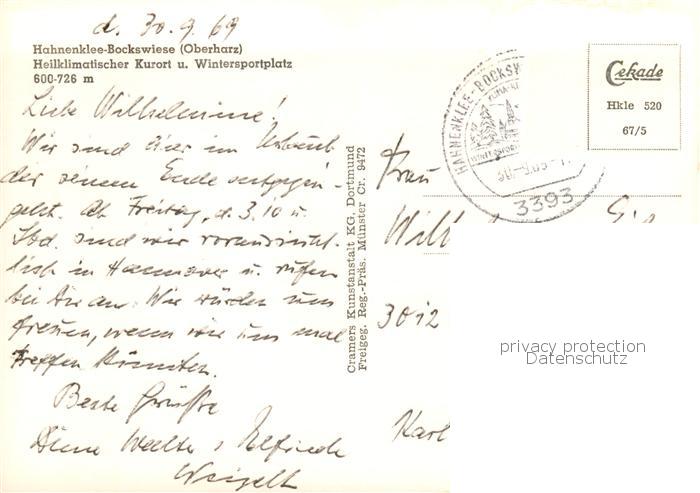 d. 30.9.69
Hahnenklee-Bockswiese (Oberharz)
Heilklimatischer Kurort u. Wintersportplatz
600-726 m
Liebe Wilhelmine!
Wir sind hier im Urlaub
der seinem Ende entgegen-
geht. Ab Freitag, d. 3.10 u.
sind wir voraussicht-
lich in Hannover u. rufen
bei Dir an. Wir würden uns
freuen, wenn wir uns mal
treffen könnten.
Beste Grüße
Deine Walter u Elfriede
Weigelt
Cramers Kunstanstalt KG, Dortmund
Freigeg. Reg.-Präs. Münster Cr. 9472
HAHNENKLEE-BOCKSW
WINTERSPORT
3393
Cekade
Hkle 520
67/5
Frau
3012
privacy protection
Datenschutz
Karl